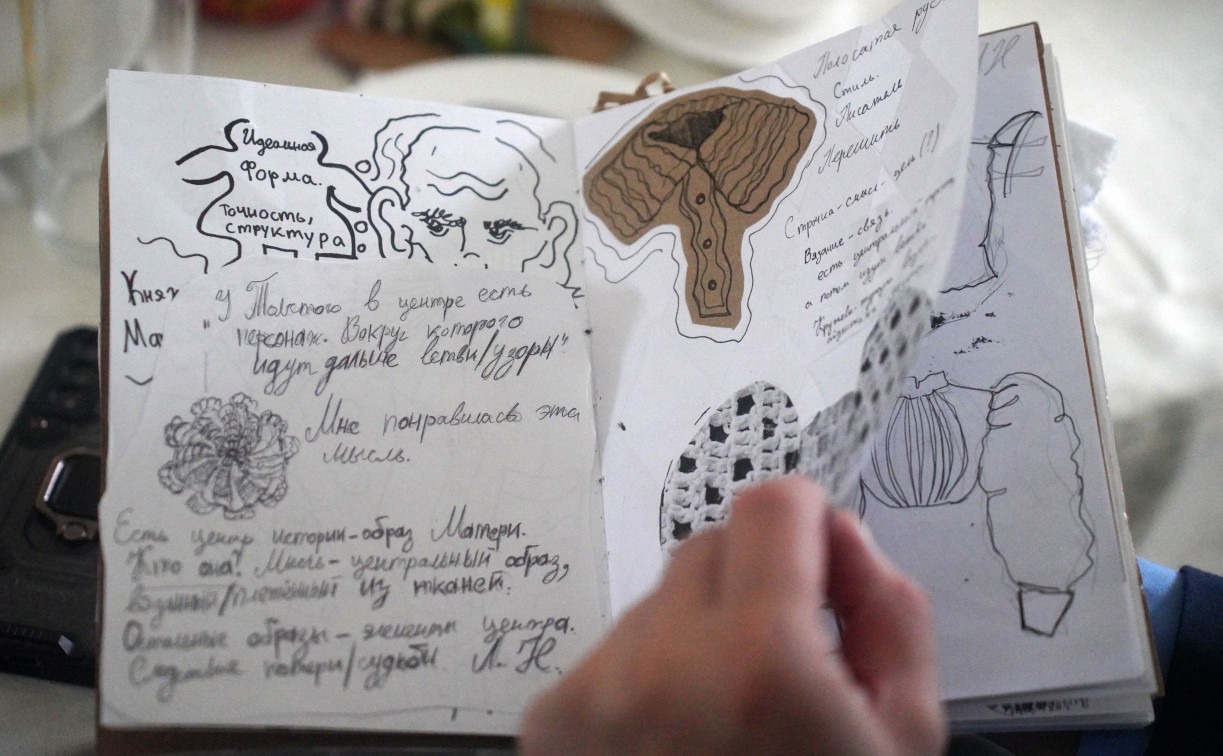 Идеальная
Форма.
Точность,
структура
Княг
Ма
"У Толстого в центре есть
персонаж. Вокруг которого
идут дальше ветви/узоры"
Мне понравилась эта
мысль.
Есть центр истории-образ Матери.
Кто она? Мысль-центральный образ,
вязанный/плетёный из тканей.
Остальные образы - элементы центра.
Следствие потери/судьбы. Л. Н.
Полосатая
Стиль.
Писатель
Перешить
Строчка-смысл-
Вязание-связь.
есть центральный
а потом идут ветви